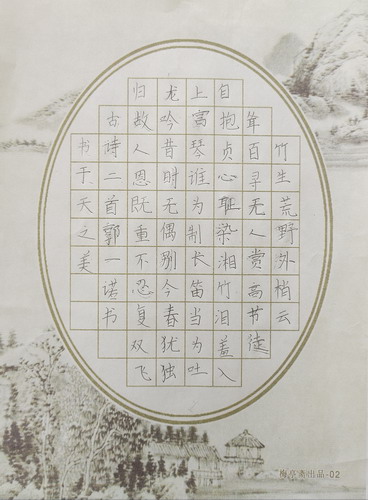 竹生荒野外梢云
耸百寻无人赏高节徒
自抱贞心耻染湘竹泪盖入
上宫琴谁为制长笛当为吐
龙吟昔时无偶别今春犹独
归故人恩既重不忍复双飞
古诗二首郭一诺书
书于天之美
出品-02